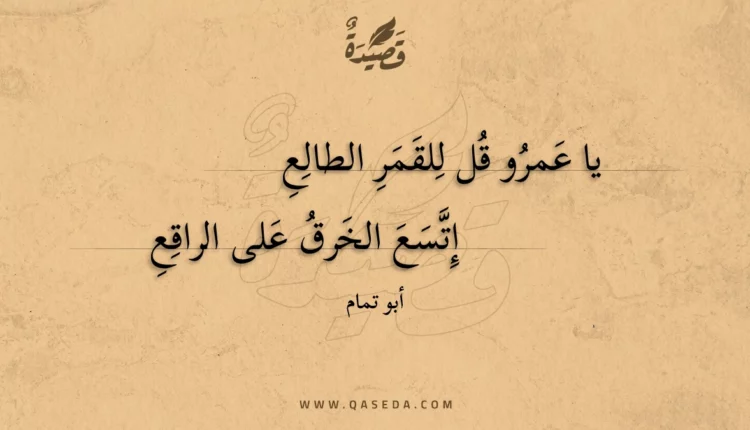 قَصِيْدَةٌ
يا عَمرُو قُل لِلقَمَرِ الطالِعِ
إِتَّسَعَ الخَرقُ عَلى الراقِعِ
أبو تمام
WWW.QASEDA.COM